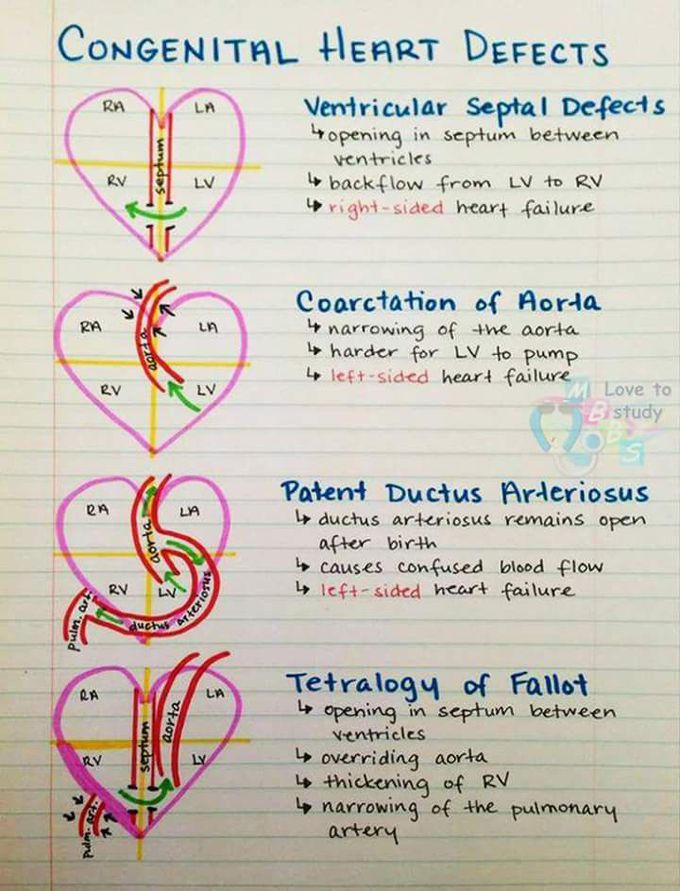 CONGENITAL HEART DEFECTS
RA
LA
septum
RV
LV
Ventricular Septal Defects
↳ opening in septum between
ventricles
↳ backflow from LV to RV
↳ right-sided heart failure
RA
LA
aorta
RV
LV
Coarctation of Aorta
↳ narrowing of the aorta
↳ harder for LV to pump
↳ left-sided heart failure
MBBS
Love to
study
RA
LA
aorta
RV
LV
pulm. art.
ductus arteriosus
Patent Ductus Arteriosus
↳ ductus arteriosus remains open
after birth
↳ causes confused blood flow
↳ left-sided heart failure
RA
LA
septum
aorta
RV
LV
pulm. art.
Tetralogy of Fallot
↳ opening in septum between
ventricles
↳ overriding aorta
↳ thickening of RV
↳ narrowing of the pulmonary
artery